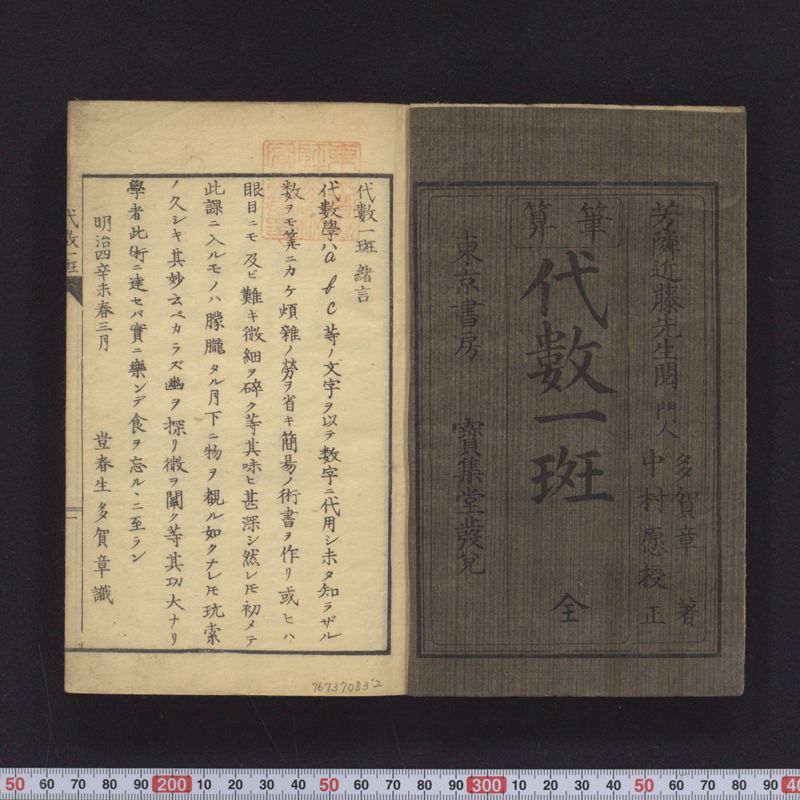 芳隣近藤先生閲 門人
多賀章 著
中村愿校正
筆算
代數一斑 全
東京書房 寶集堂發兌
代數一斑 緒言
代數學ハabc等ノ文字ヲ以テ数字ニ代用シ未タ知ラザル
数ヲモ筭ニカケ煩雜ノ勞ヲ省キ簡易ノ術書ヲ作リ或ヒハ
眼目ニモ及ビ難キ微細ヲ碎ク等其味ヒ甚深シ然レ𪜈初メテ
此課ニ入ルモノハ朦朧タル月下ニ物ヲ覩ル如クナレ𪜈玩索
ノ久シキ其妙云ベカラズ幽ヲ探リ微ヲ闡ク等其功大ナリ
學者此術ニ達セバ實ニ樂ンデ食ヲ忘ルヽニ至ラン
明治四辛未春三月 豈春生多賀章識
代數一斑
767370832
50 60 70 80 90 200 10 20 30 40 50 60 70 80 90 300 10 20 30 40 50 60 70 80 90 40